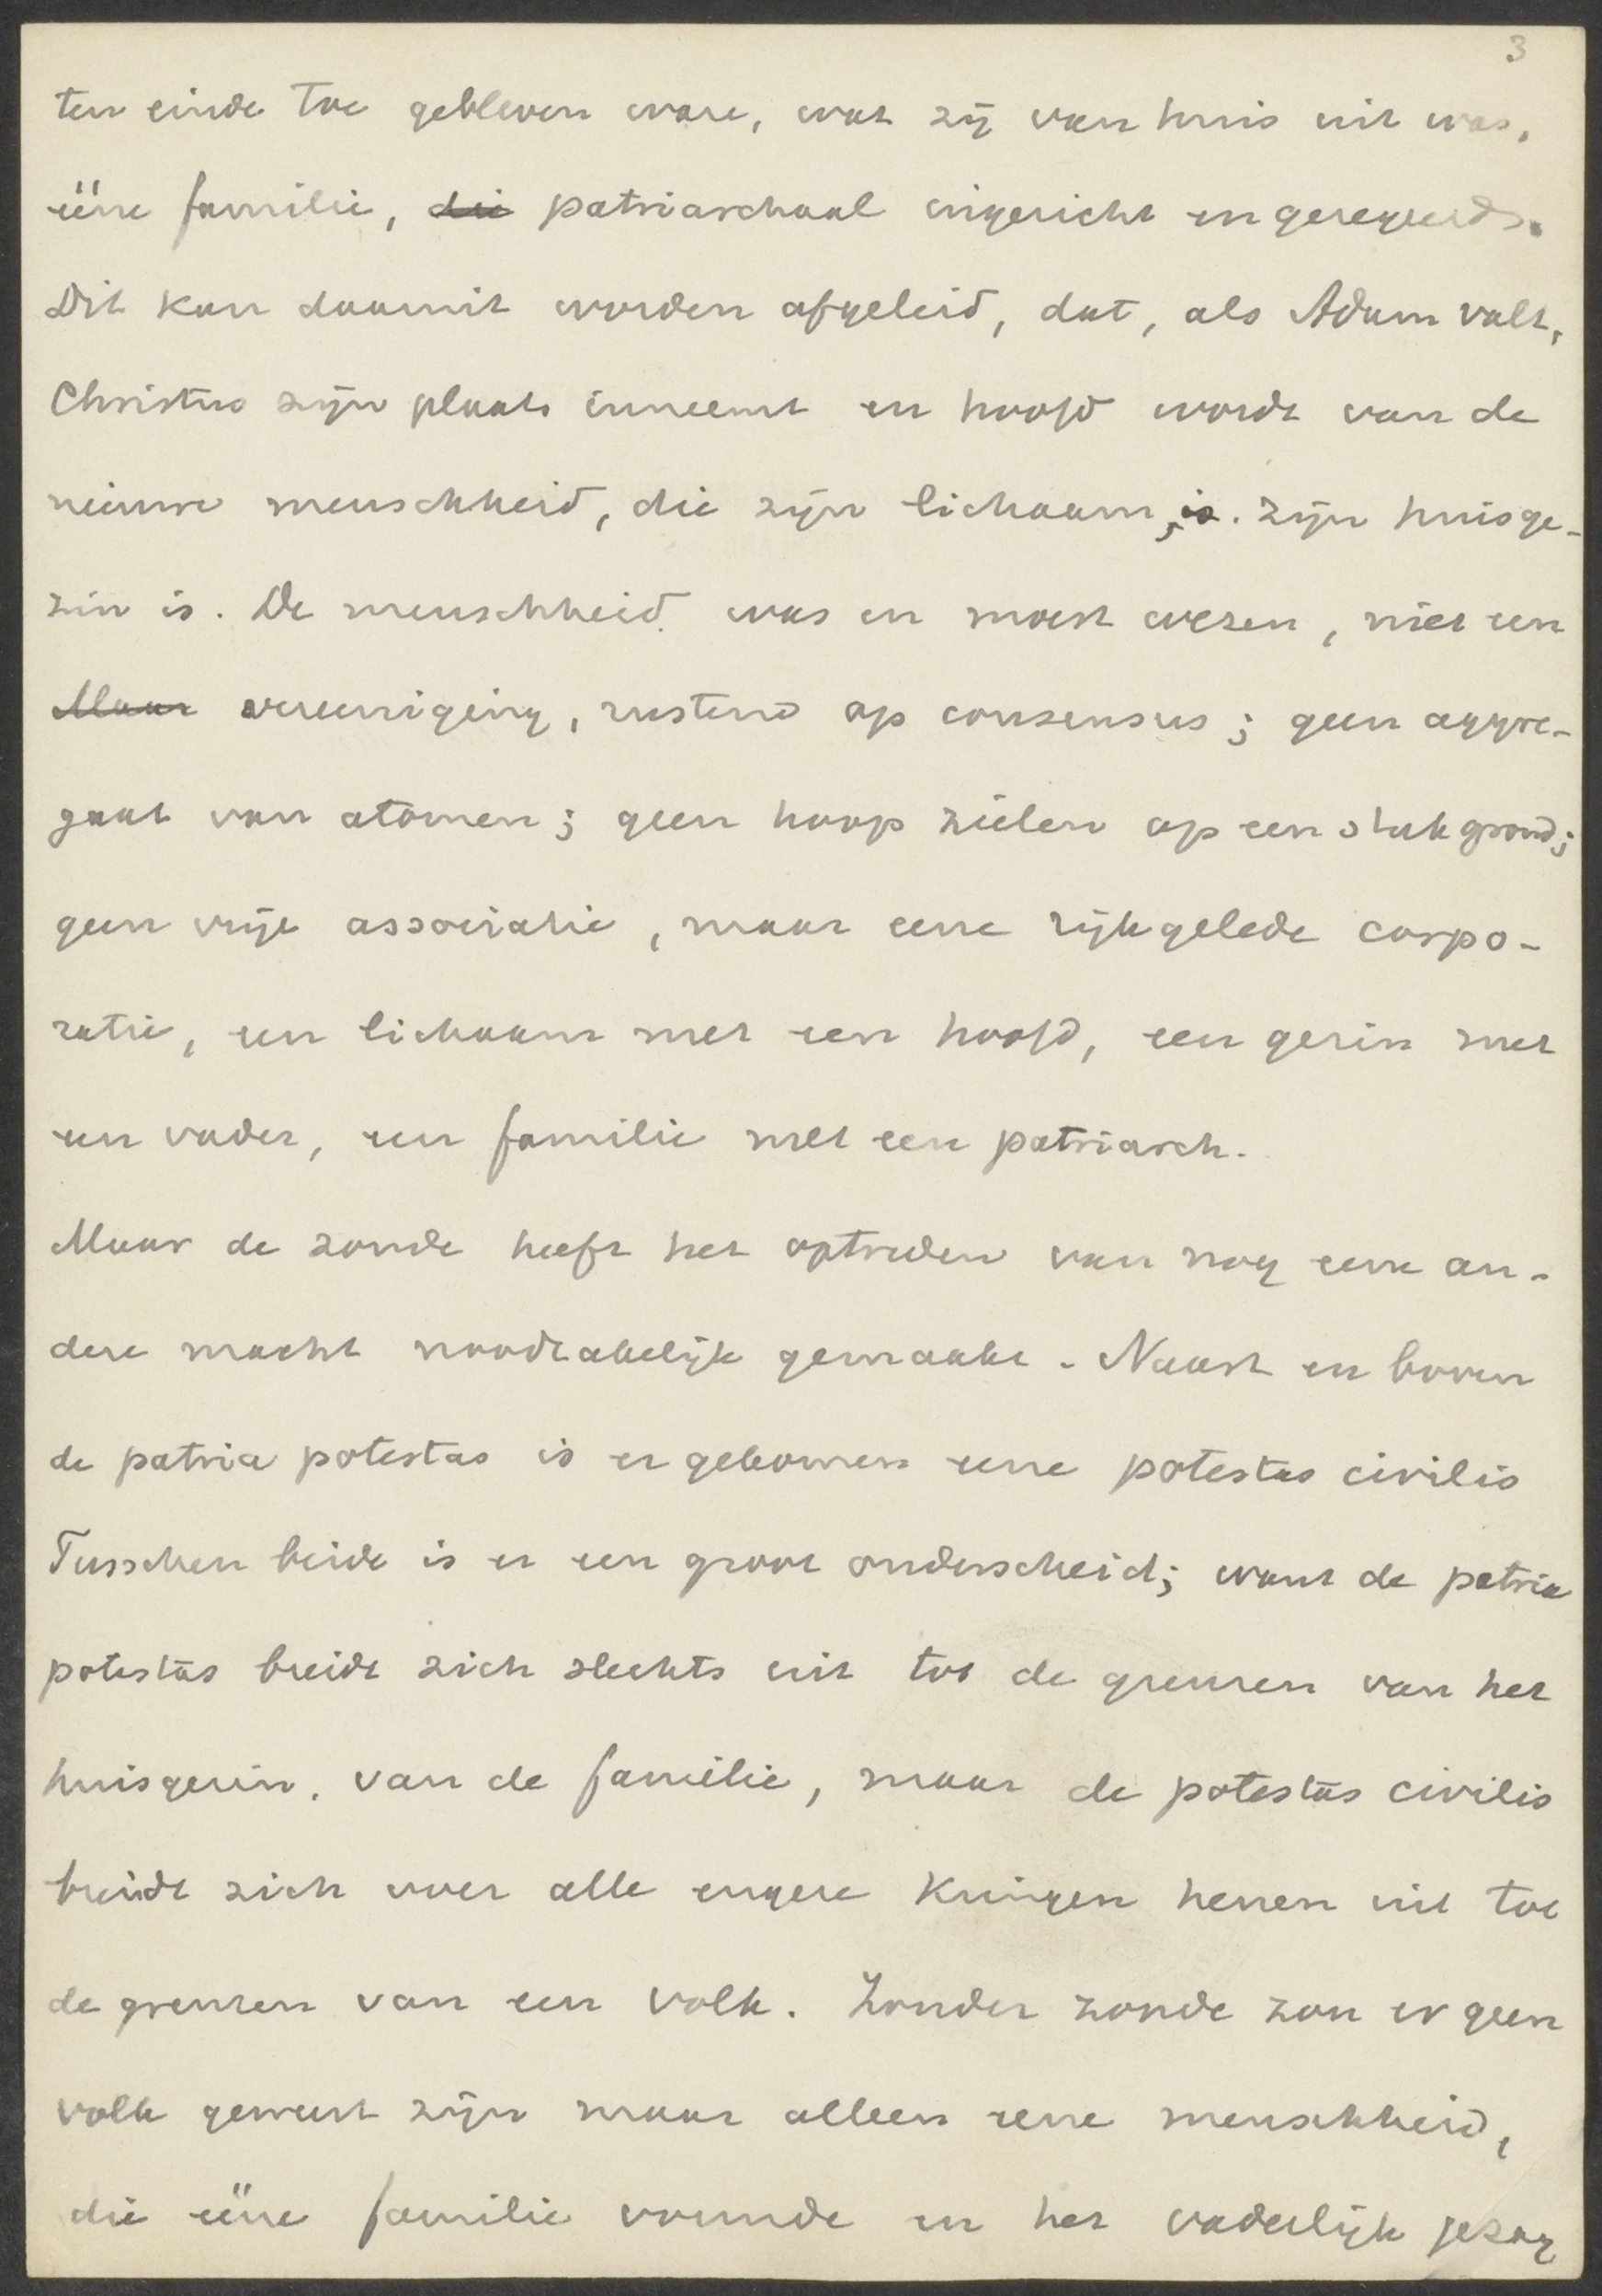 3
ten einde toe gebleven ware, wat zij van huis uit was,
ééne familie, die patriarchaal ingericht en geregeerd.
Dit kan daaruit worden afgeleid, dat, als Adam valt,
Christus zijn plaats inneemt en hoofd wordt van de
nieuwe menschheid, die zijn lichaam, is. zijn huisge-
zin is. De menschheid was en moest wezen, niet een
Maar vereeniging, rustend op consensus; geen aggre-
gaat van atomen; geen hoop zielen op een stuk grond;
geen vrije associatie, maar eene rijkgelede corpo-
ratie, een lichaam met een hoofd, een gezin met
een vader, een familie met een patriarch.
Maar de zonde heeft het optreden van nog eene an-
dere macht noodzakelijk gemaakt. Naast en boven
de patria potestas is er gekomen eene potestas civilis
Tusschen beide is er een groot onderscheid; want de patria
potestas breidt zich slechts uit tot de grenzen van het
huisgezin, van de familie, maar de potestas civilis
breidt zich over alle engere kringen henen uit tot
de grenzen van een volk. Zonder zonde zou er geen
volk geweest zijn maar alleen eene menschheid,
die ééne familie vormde en het vaderlijk gezag